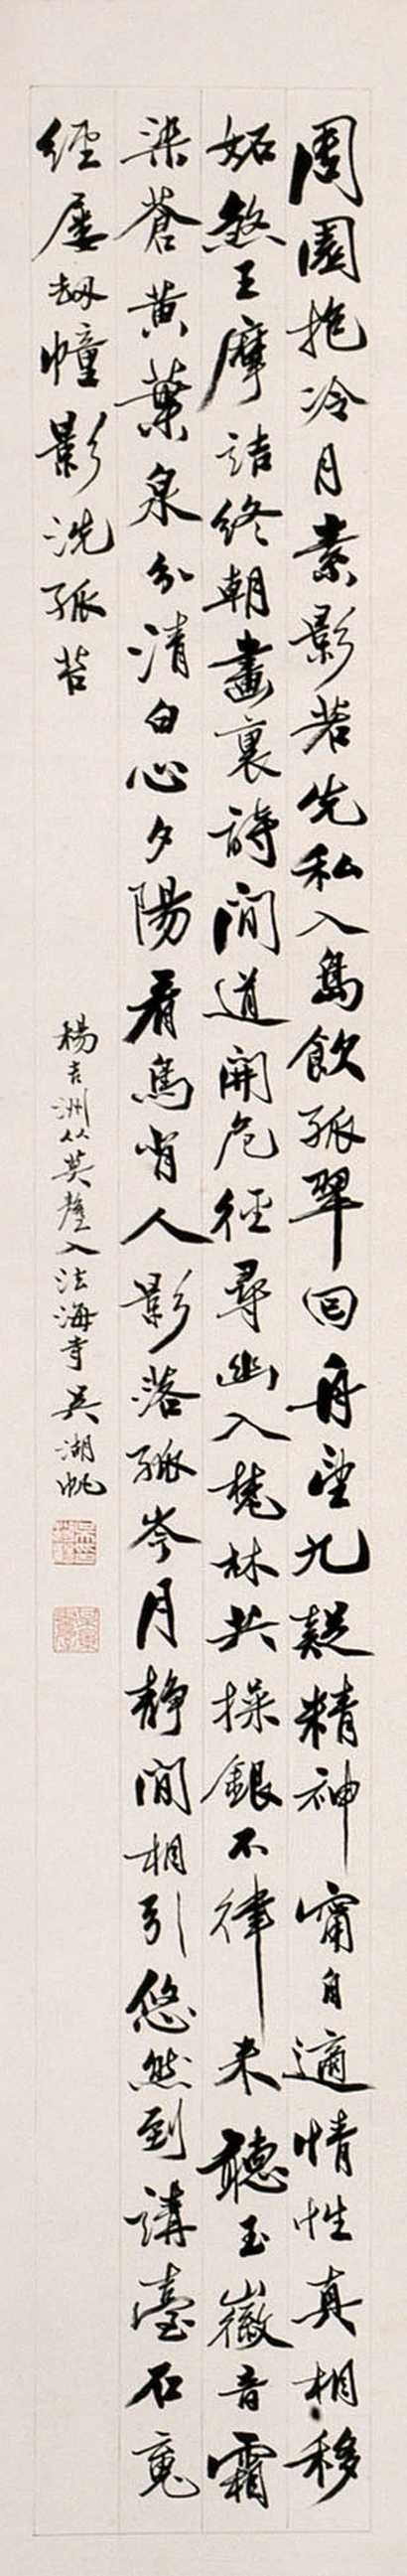 周園抱冷月素影若先私入島飲孤翠回舟望九疑精神寧自適情性真相移
妬煞王摩詰終朝畫裏詩間道開危徑尋幽入梵林共操銀不律來聽玉徽音霜
染蒼黃葉泉分清白心夕陽看馬背人影落孤岑月靜閒相引悠然到講臺石竟
經屢劫幢影洗孤苔
楊吉洲從英蘆入法海寺 吳湖帆